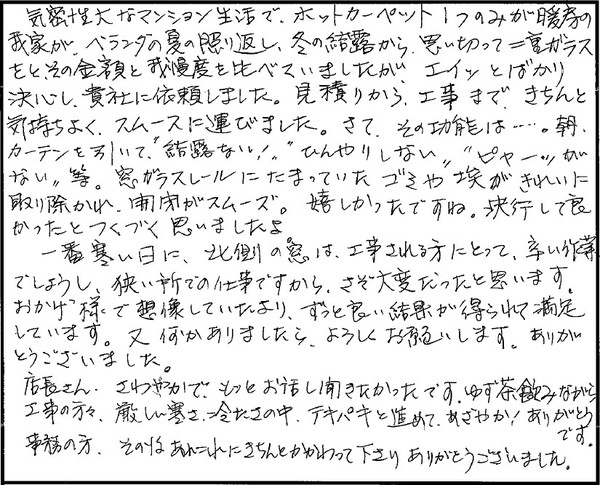 気密性大なマンション生活で、ホットカーペット1つのみが暖房の
我家が、ベランダの夏の照り返し、冬の結露から、思い切って二重ガラス
をとその金額と我慢度を比べていましたが、エイッとばかり
決心し、貴社に依頼しました。見積りから、工事まで、きちんと
気持ちよく、スムースに運びました。さて、その功能は……。朝、
カーテンを引いて、"結露ない!" "ひんやりしない" "ピャーッが
ない"等。窓ガラスレールにたまっていたゴミや埃がきれいに
取り除かれ、開閉がスムーズ。嬉しかったですね。決行して良
かったとつくづく思いましたよ
一番寒い日に、北側の窓は、工事される方にとって、辛い作業
でしょうし、狭い所での仕事ですから、さぞ大変だったと思います。
おかげ様で想像していたより、ずっと良い結果が得られて満足
しています。又何かありましたら、よろしくお願いします。ありが
とうございました。
店長さん、さわやかで、もっとお話し聞きたかったです。ゆず茶飲みながら
工事の方々、厳しい寒さ、冷たさの中、テキパキと進めて、あざやか!ありがとう
です。
事務の方、そのほあれこれにきちんとかかわって下さりありがとうございました。